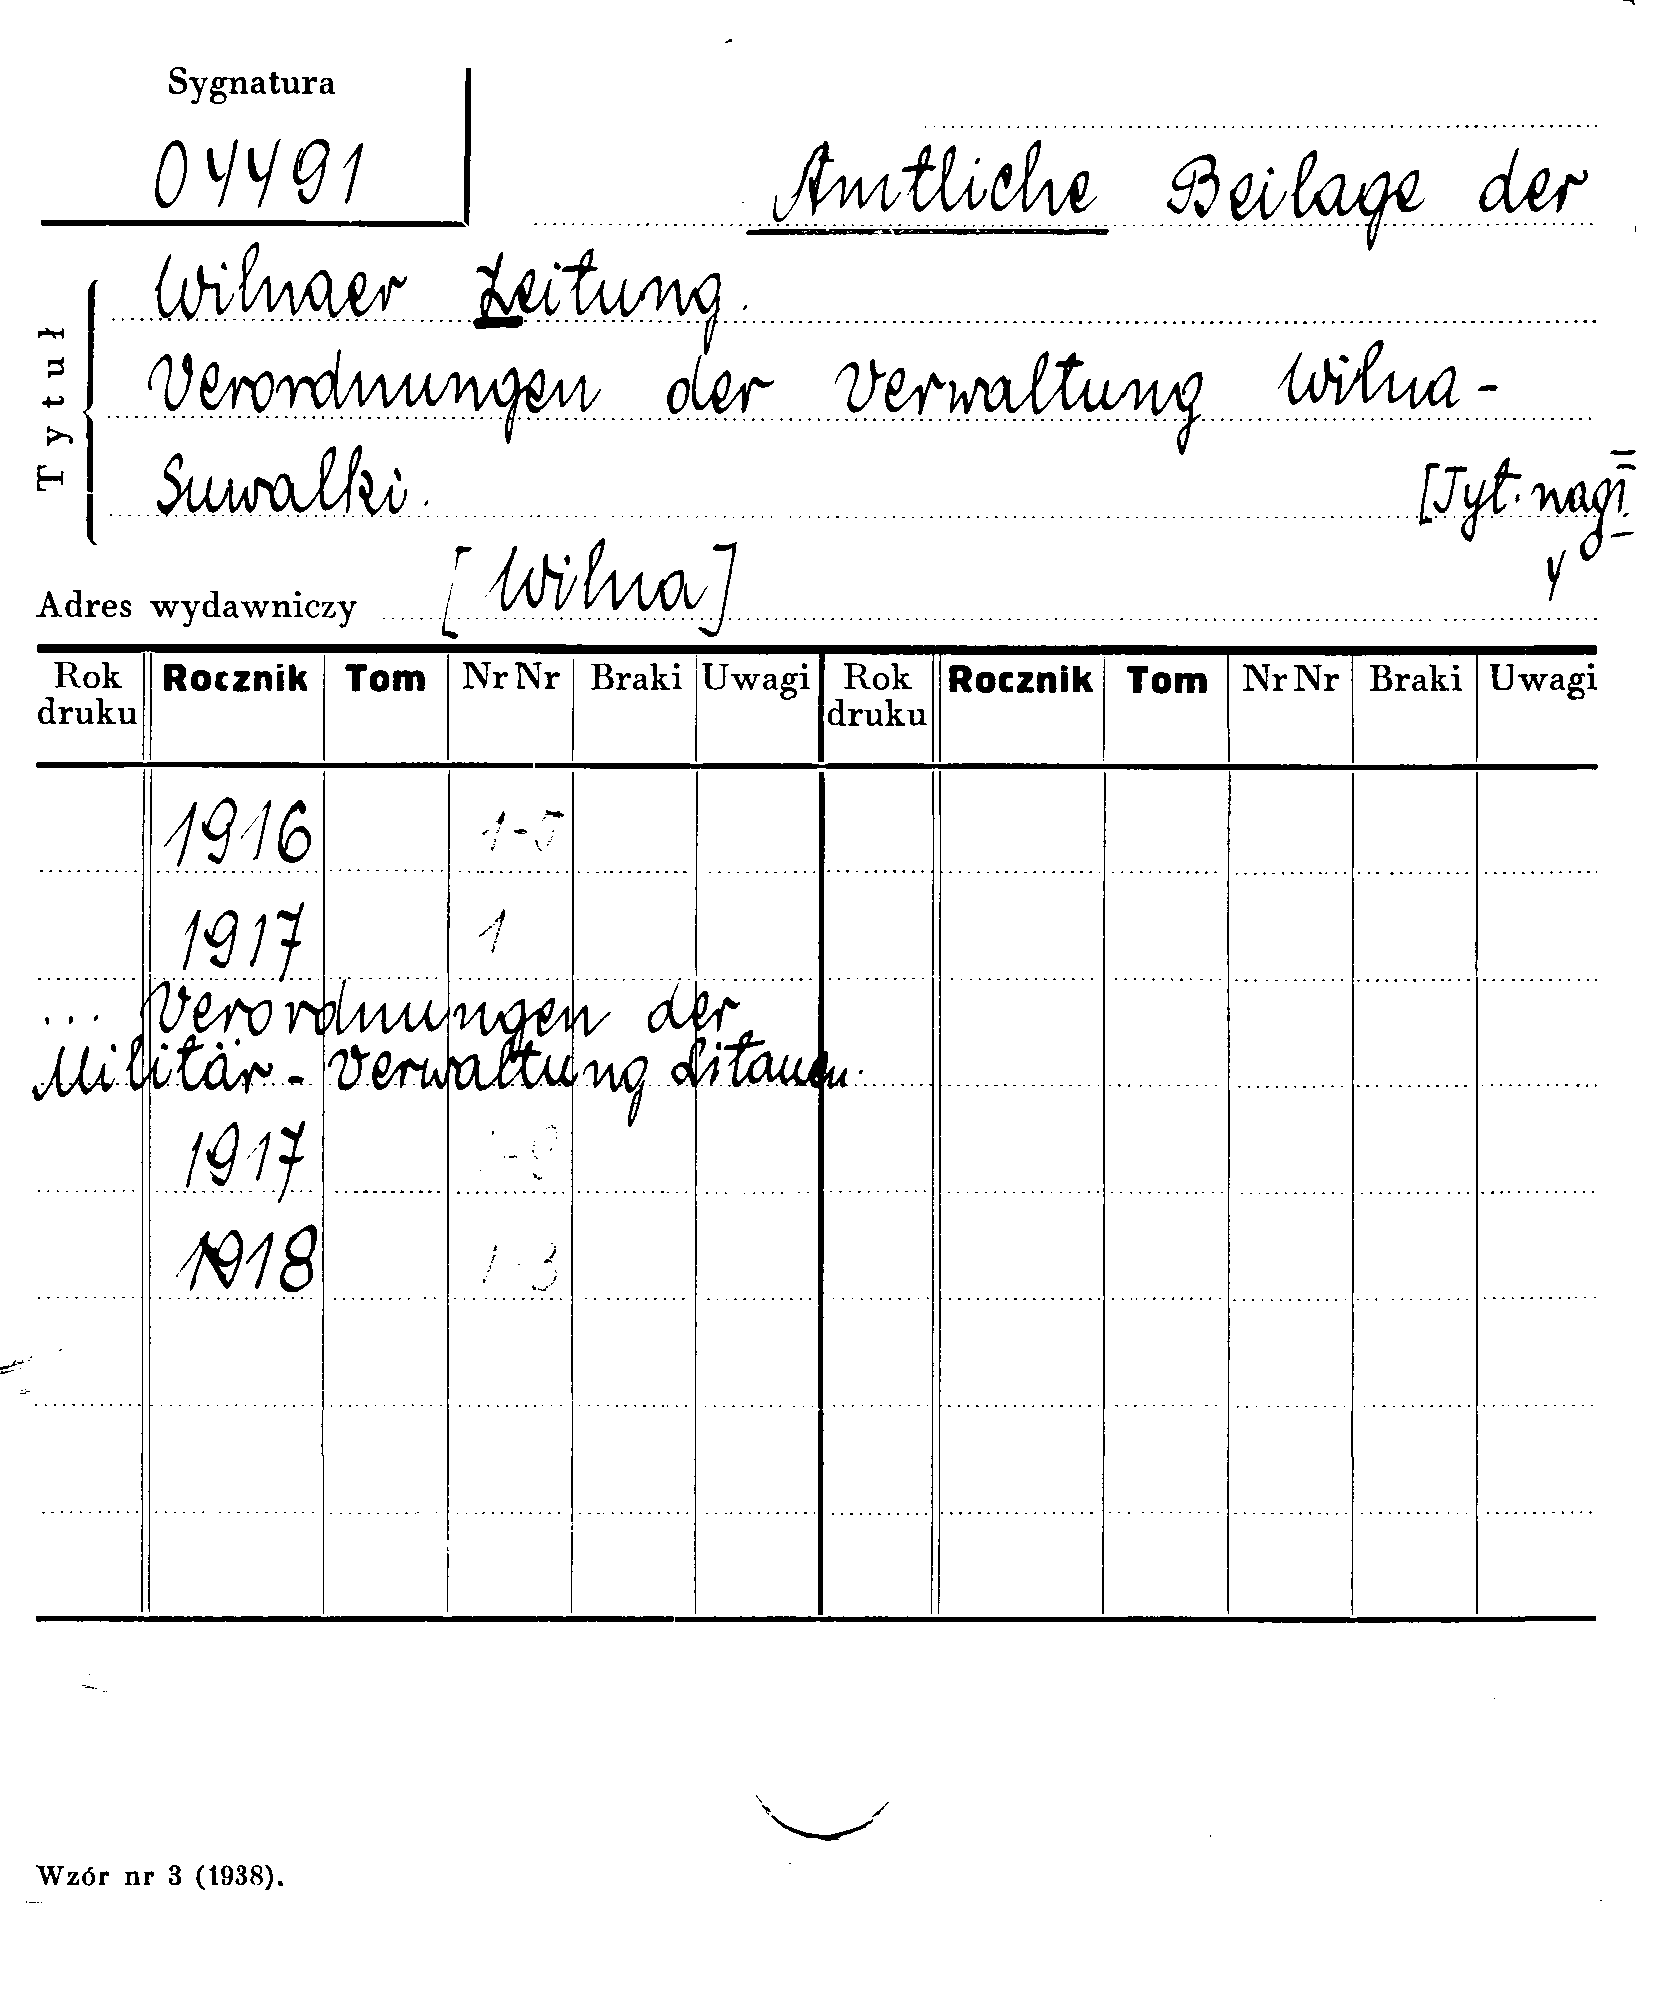 Sygnatura
04491
Amtliche Beilage der
Wilnaer Zeitung.
Verordnungen der Verwaltung Wilna-
Suwalki. [Tyt. nagł.
Tytuł
Adres wydawniczy [Wilna]
Rok druku Rocznik Tom Nr Nr Braki Uwagi Rok druku Rocznik Tom Nr Nr Braki Uwagi
1916 1-5
1917 1
... Verordnungen der
Militär-Verwaltung Litauen.
1917 -9
1918 1-3
Wzór nr 3 (1938).